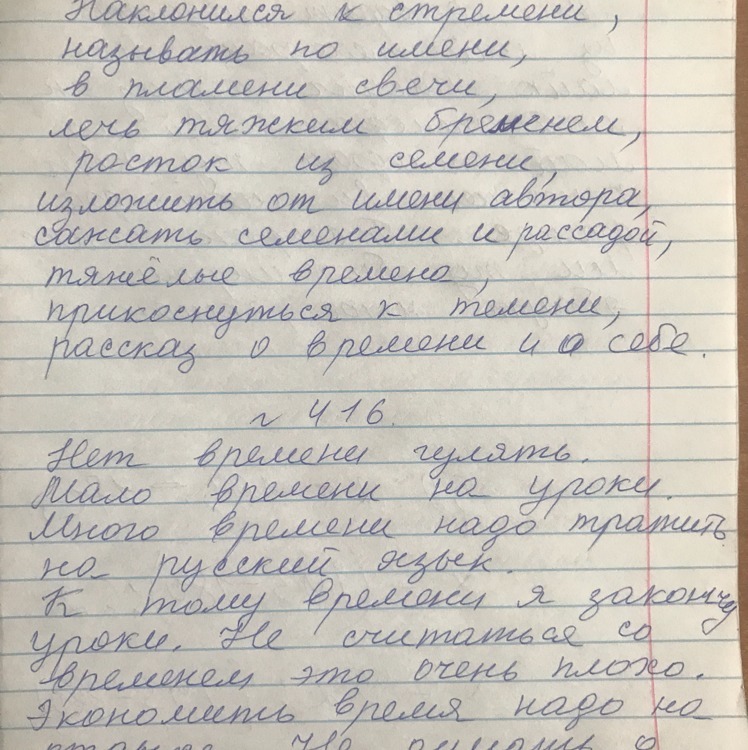 Наклонился к стремени,
называть по имени,
в пламени свечи,
лечь тяжким бременем,
росток из семени,
изложить от имени автора,
сажать семенами и рассадой,
тяжёлые времена,
прикоснуться к темени,
рассказ о времени и о себе.
№ 416.
Нет времени гулять.
Мало времени на уроки.
Много времени надо тратить
на русский язык.
К тому времени я закончу
уроки. Не считаться со
временем это очень плохо.
Экономить время надо на
Не